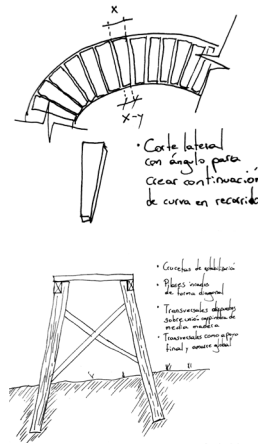 x
x-y
• Corte lateral
con ángulo para
crear continuación
de curva en recorrido
• Crucetas de estabilización
• Pilares
de forma diagonal
• Transversales
sobre unión
media madera
• Transversales como apoyo
final, amarre global